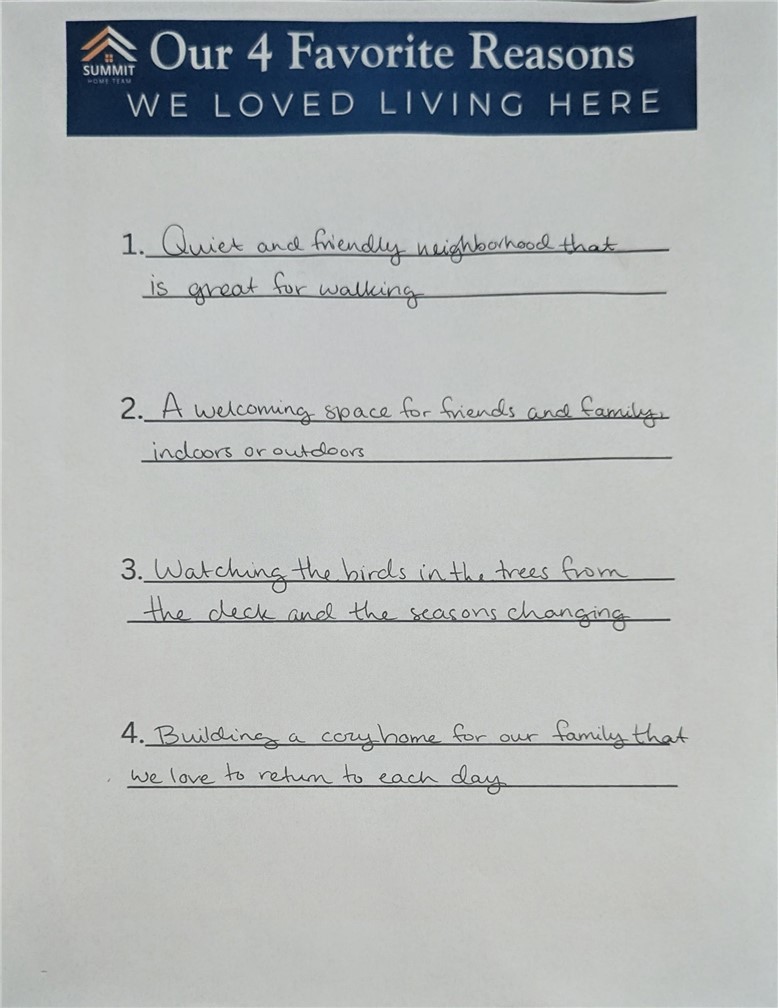 SUMMIT
HOME TEAM
Our 4 Favorite Reasons
WE LOVED LIVING HERE
1. Quiet and friendly neighborhood that
is great for walking
2. A welcoming space for friends and family,
indoors or outdoors
3. Watching the birds in the trees from
the deck and the seasons changing
4. Building a cozy home for our family that
we love to return to each day